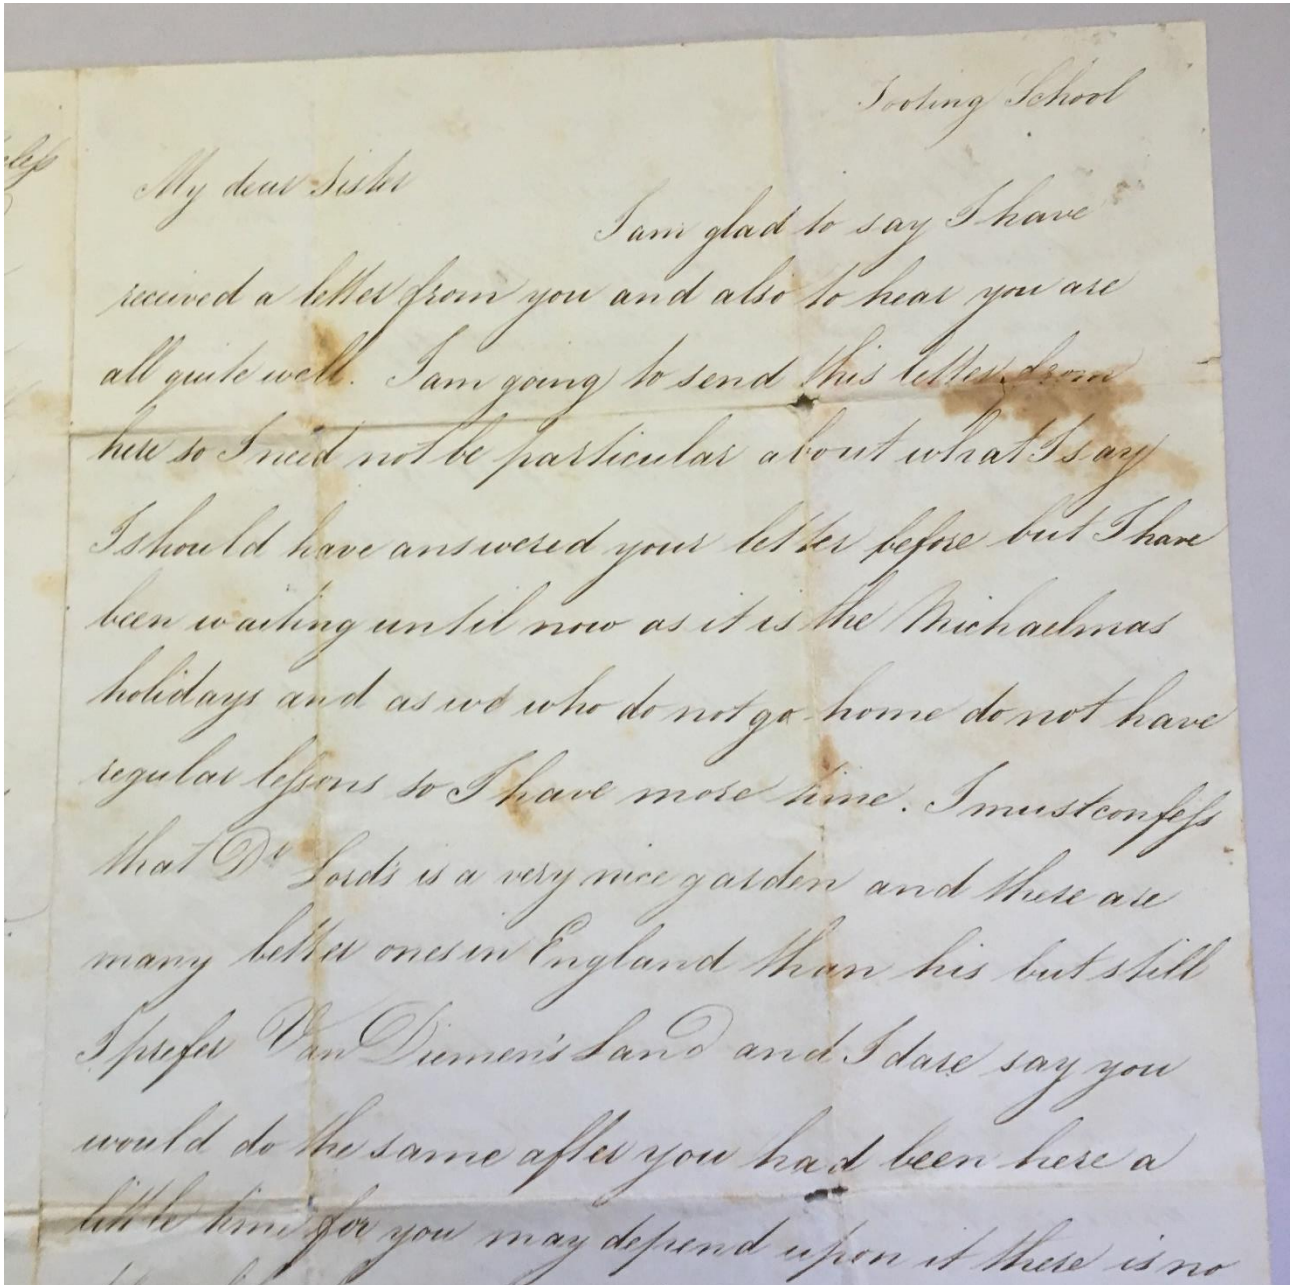 Tooting School
My dear Sister
I am glad to say I have
received a letter from you and also to hear you are
all quite well. I am going to send this letter from
here so I need not be particular about what I say
I should have answered your letter before but I have
been waiting until now as it is the Michaelmas
holidays and as we who do not go home do not have
regular lessons so I have more time. I must confess
that Dr Lord's is a very nice garden and there are
many better ones in England than his but still
I prefer Van Diemen's Land and I dare say you
would do the same after you had been here a
little time for you may depend upon it there is no